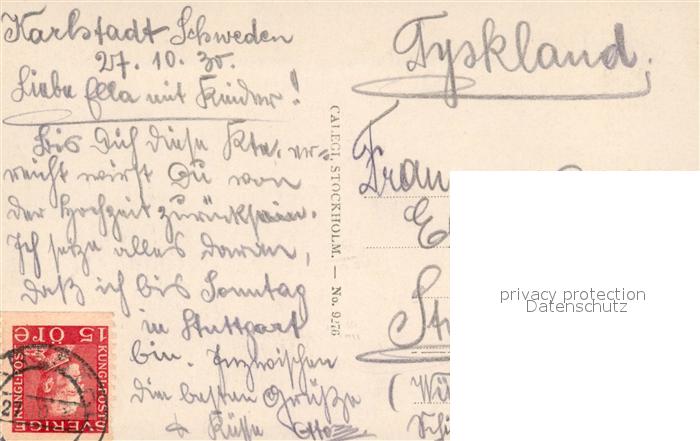 Karlstadt Schweden
27. 10. 30.
Liebe Ella mit Kinder!
Bis Dich diese Kte. er=
reicht wirst Du von
der Hochzeit zurück sein.
Ich setze alles daran,
daß ich bis Sonntag
in Stuttgart
bin. Inzwischen
die besten Grüße
& Küsse Otto
CALEGI, STOCKHOLM. — No. 9276
Tyskland.
Frau
(Wü
privacy protection
Datenschutz
15 ÖRE 15
KUNGL-POST
SVERIGE